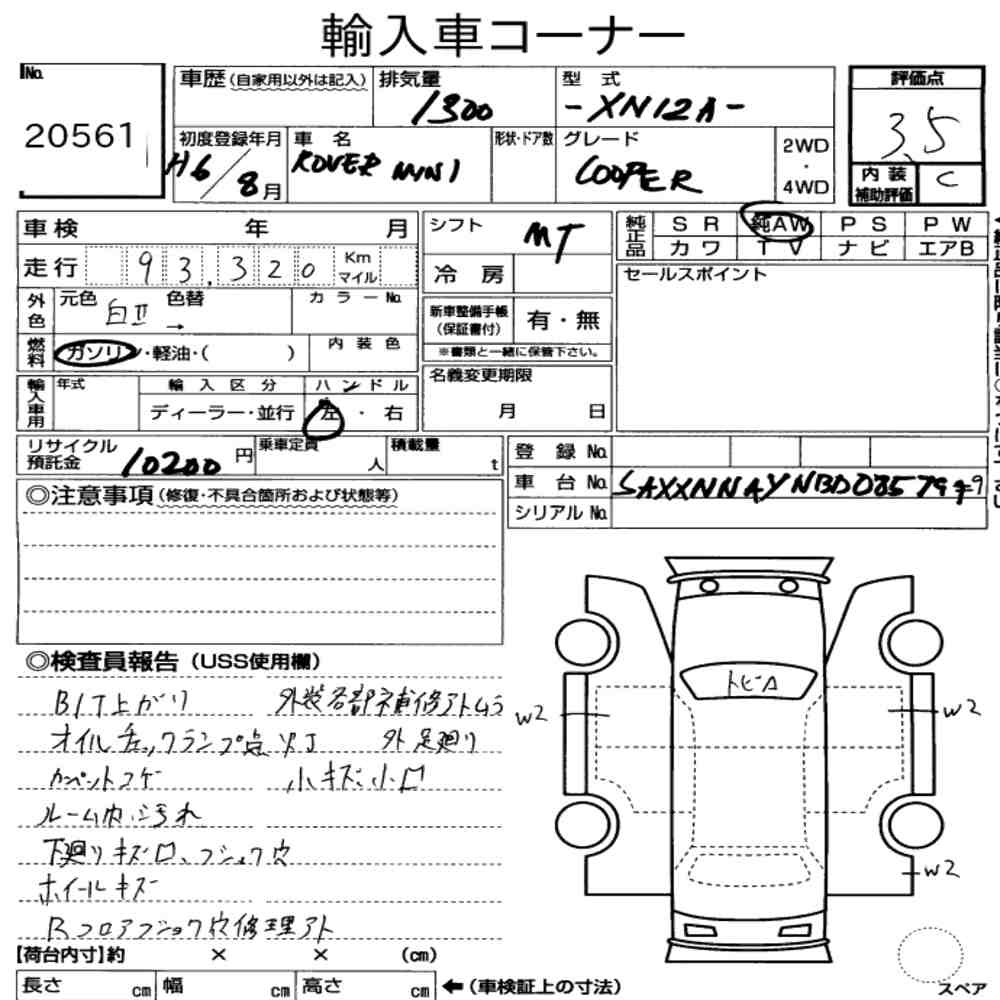 輸入車コーナー
No. 20561
車歴 (自家用以外は記入) 排気量 1300 型式 -XN12A-
評価点 3.5
初度登録年月 H6/8月 車名 ROVER MINI 形状・ドア数 グレード COOPER 2WD・4WD
内装補助評価 C
車検 年 月
走行 93,320 Km マイル
シフト MT
冷房
純正品 SR 純AW PS PW
カワ TV ナビ エアB
外色 元色 白II 色替 → カラーNo.
新車整備手帳(保証書付) 有・無
※書類と一緒に保管下さい。
セールスポイント
燃料 ガソリン・軽油・( ) 内装色
輸入車用 年式 輸入区分 ハンドル
ディーラー・並行 左・右
名義変更期限 月 日
リサイクル預託金 10200円 乗車定員 人 積載量 t
登録No.
車台No. SAXXNNAYNBD085799
シリアルNo.
◎注意事項 (修復・不具合箇所および状態等)
◎検査員報告 (USS使用欄)
B/T上がり 外装各部補修アトムラ
オイルチェックランプ点灯 外 足廻り
カーペットコゲ 小キズ小ロ
ルーム内汚れ
下廻りキズロ、フショク穴
ホイールキズ
Rフロアフショク穴修理アト
トビA
W2
W2
W2
【荷台内寸】約 × × (cm)
長さ cm 幅 cm 高さ cm ←(車検証上の寸法)
スペア